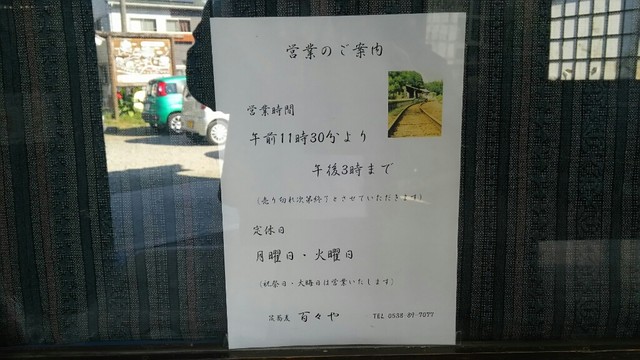 営業のご案内
営業時間
午前11時30分より
午後3時まで
(売り切れ次第終了とさせていただきます)
定休日
月曜日・火曜日
(祝祭日・大晦日は営業いたします)
百々や TEL 0538-89-7077